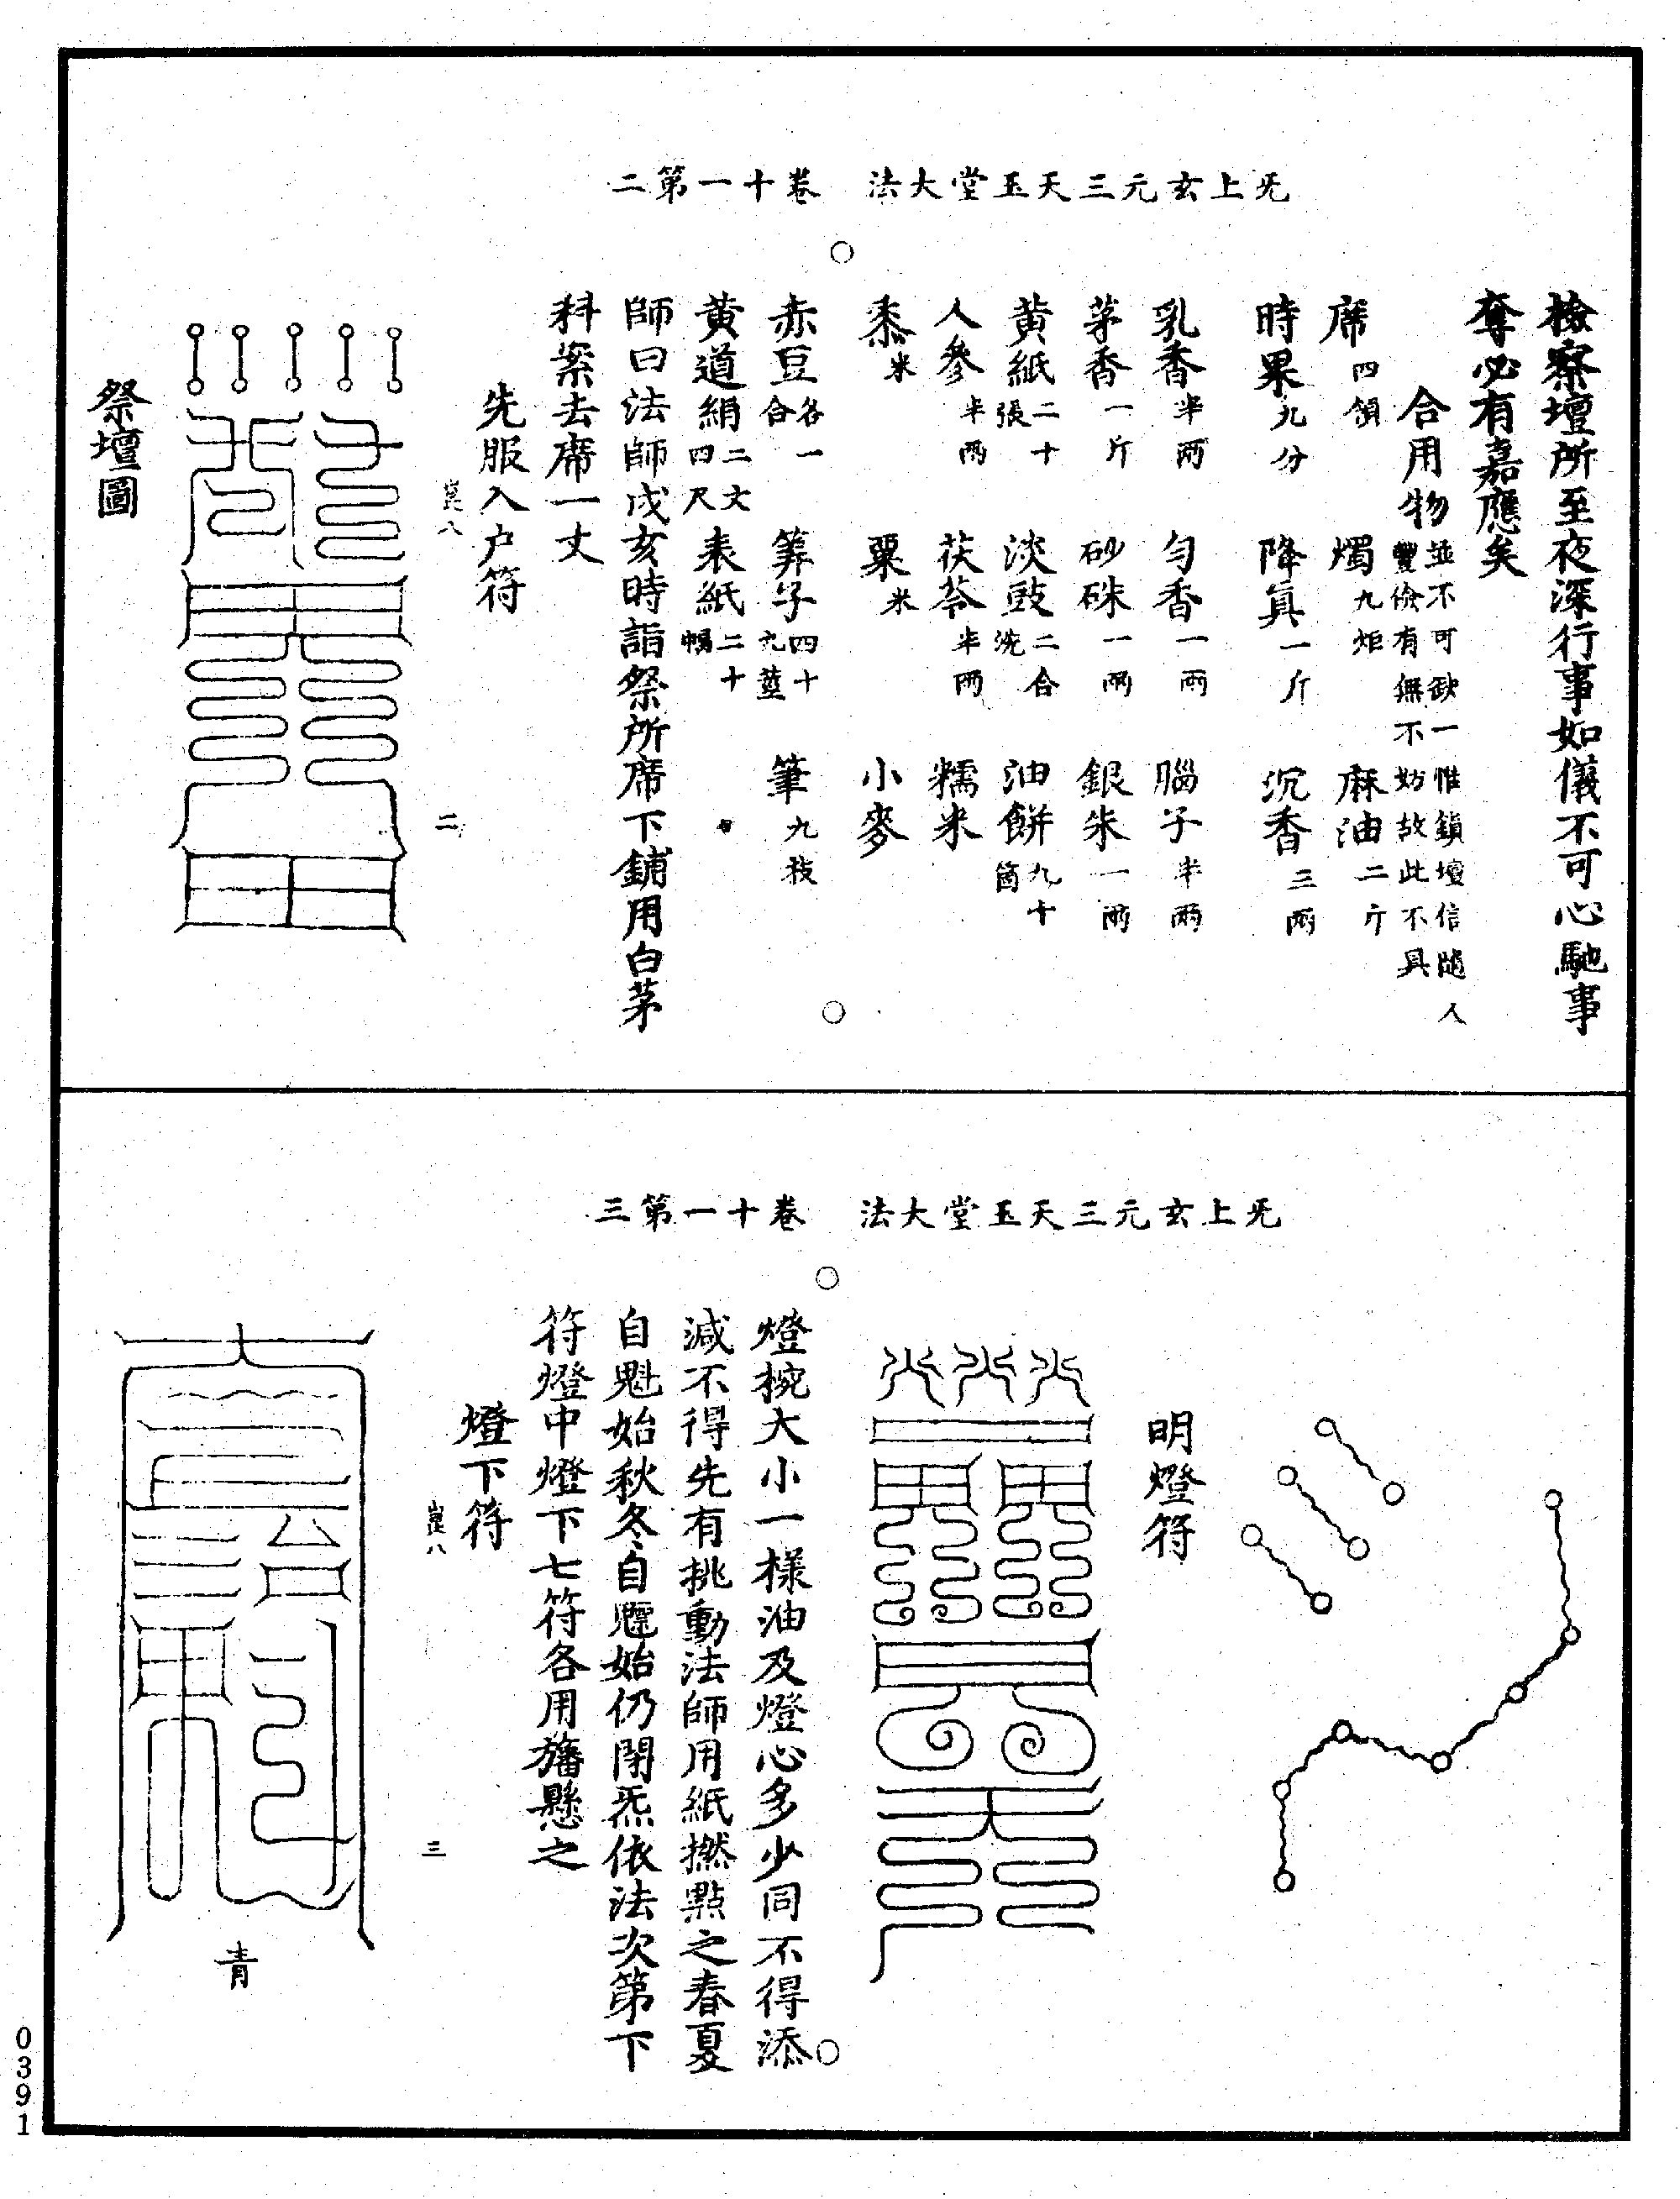 无上玄元三天玉堂大法　卷十一第二
檢察壇所至夜深行事如儀不可心馳事
奪必有嘉應矣
合用物並不可缺一惟鎮壇信隨人豐儉有無不妨故此不具
席四領　燭九炬　麻油二斤
時果九分　降真一斤　沉香三兩
乳香半兩　勻香一兩　腦子半兩
茅香一斤　砂硃一兩　銀朱一兩
黃紙二十張　淡豉二合洗　油餅九十箇
人參半兩　茯苓半兩　糯米
黍米　粟米　小麥
赤豆各一合　筭子四十九莖　筆九枝
黃道絹二丈四尺　表紙二十幅
師曰法師戌亥時詣祭所席下鋪用白茅
科案去席一丈
先服入户符
崑八
二
祭壇圖
无上玄元三天玉堂大法　卷十一第三
明燈符
燈椀大小一樣油及燈心多少同不得添
減不得先有挑動法師用紙撚點之春夏
自魁始秋冬自魒始仍閉炁依法次第下
符燈中燈下七符各用旛懸之
燈下符
崑八
三
青
0391